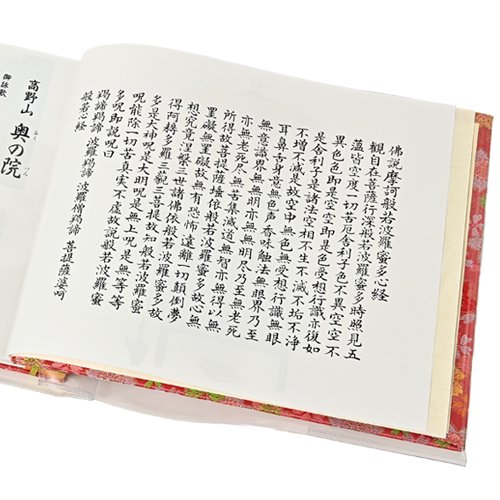 佛説摩訶般若波羅蜜多心経
観自在菩薩行深般若波羅蜜多時照見五
蘊皆空度一切苦厄舎利子色不異空空不
異色色即是空空即是色受想行識亦復如
是舎利子是諸法空相不生不滅不垢不浄
不増不減是故空中無色無受想行識無眼
耳鼻舌身意無色声香味触法無眼界乃至
無意識界無無明亦無無明尽乃至無老死
亦無老死尽無苦集滅道無智亦無得以無
所得故菩提薩埵依般若波羅蜜多故心無
罣礙無罣礙故無有恐怖遠離一切顛倒夢
想究竟涅槃三世諸佛依般若波羅蜜多故
得阿耨多羅三藐三菩提故知般若波羅蜜
多是大神呪是大明呪是無上呪是無等等
呪能除一切苦真実不虚故説般若波羅蜜
多呪即説呪曰
羯諦羯諦 波羅羯諦 波羅僧羯諦 菩提薩婆呵
般若心経
高野山 奥の院
御詠歌